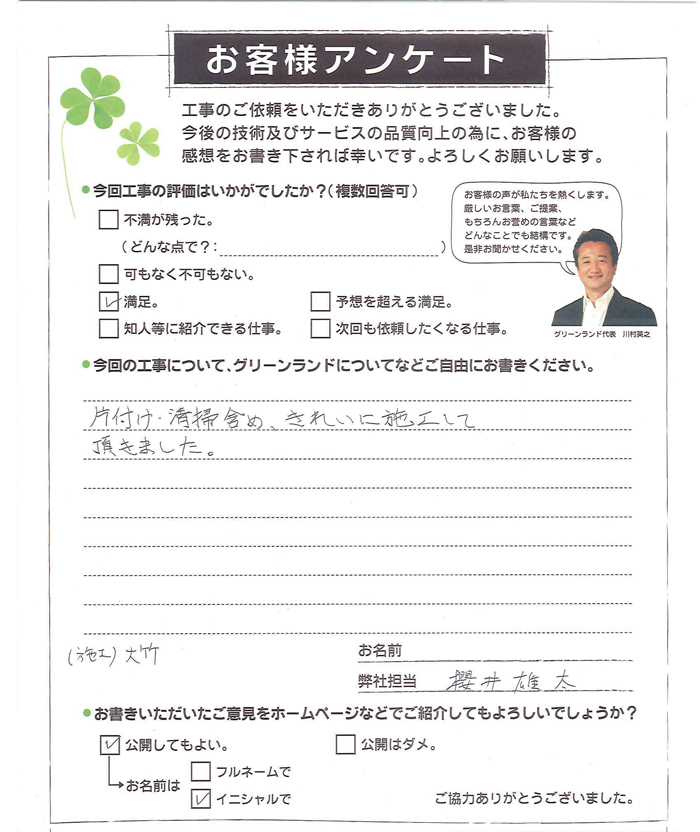 お客様アンケート
工事のご依頼をいただきありがとうございました。
今後の技術及びサービスの品質向上の為に、お客様の
感想をお書き下されば幸いです。よろしくお願いします。
●今回工事の評価はいかがでしたか？（複数回答可）
不満が残った。
（どんな点で？：　　　　）
可もなく不可もない。
満足。
予想を超える満足。
知人等に紹介できる仕事。
次回も依頼したくなる仕事。
お客様の声が私たちを熱くします。
厳しいお言葉、ご提案、
もちろんお誉めの言葉など
どんなことでも結構です。
是非お聞かせください。
グリーンランド代表　川村英之
●今回の工事について、グリーンランドについてなどご自由にお書きください。
片付け・清掃含め、きれいに施工して
頂きました。
(施工) 大竹
お名前
弊社担当　櫻井雄太
●お書きいただいたご意見をホームページなどでご紹介してもよろしいでしょうか？
公開してもよい。
公開はダメ。
お名前は
フルネームで
イニシャルで
ご協力ありがとうございました。